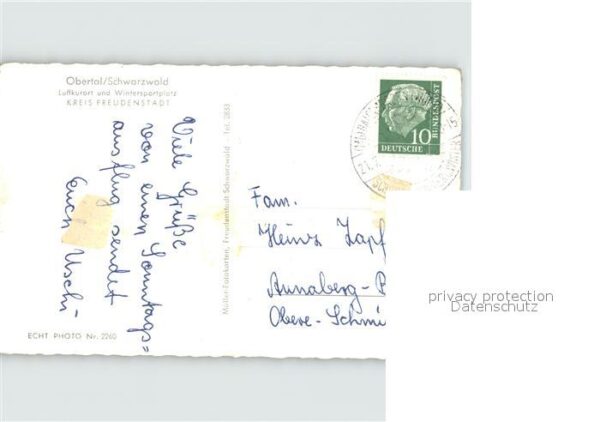 Obertal/Schwarzwald
Luftkurort und Wintersportplatz
KREIS FREUDENSTADT
Viele Grüße
von einem Sonntags=
ausflug sendet
Euch Uschi
ECHT PHOTO Nr. 2260
Müller-Fotokarten, Freudenstadt-Schwarzwald Tel. 2833
10
DEUTSCHE
BUNDESPOST
Fam.
Heinz Zapf
Annaberg-
Obere-Schmi
privacy protection
Datenschutz